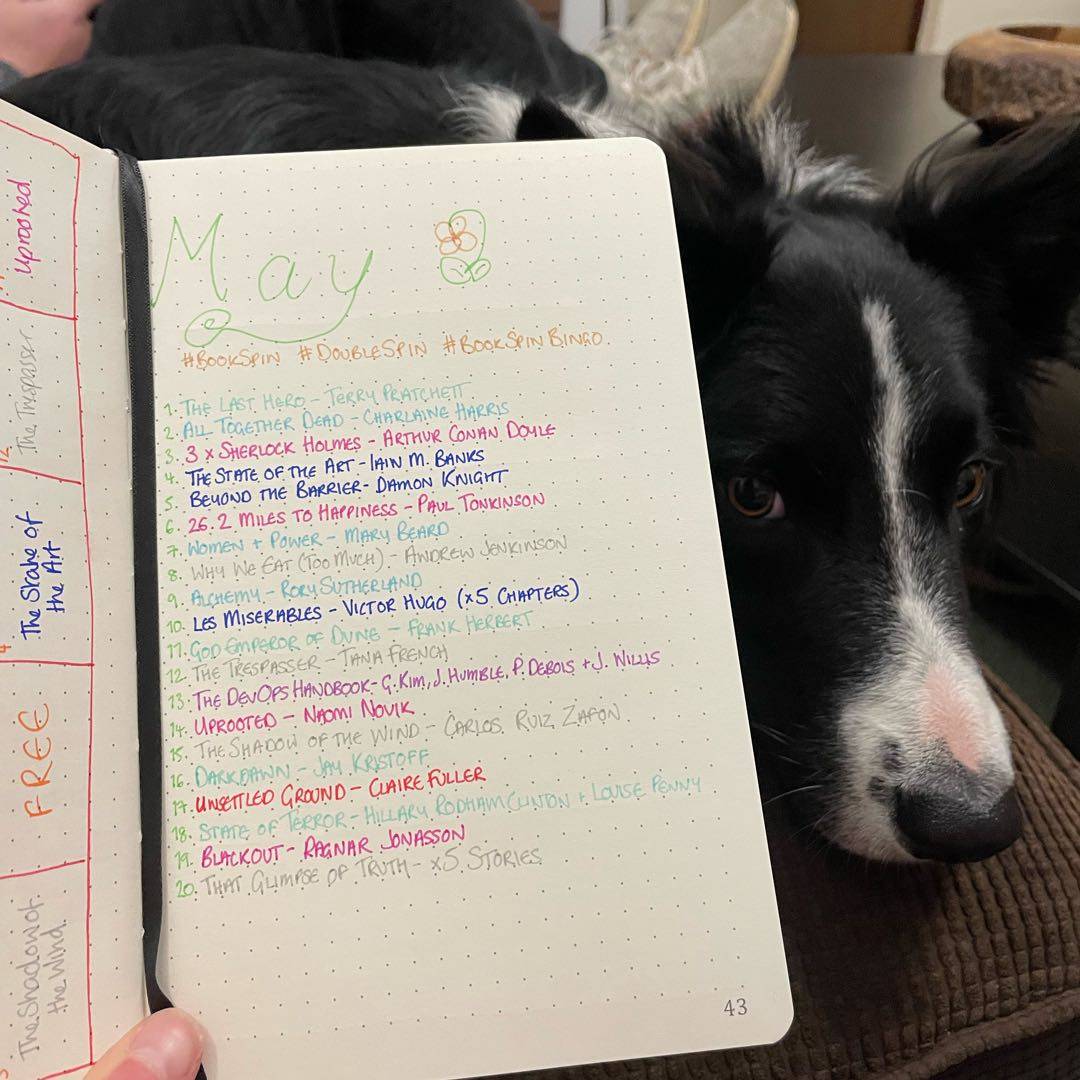 Uprooted
12
The Trespasser
4
The State of
the Art
FREE
The Shadow of
the Wind
May
#BOOKSPIN #DOUBLESPIN #BOOKSPINBINGO
1. THE LAST HERO - TERRY PRATCHETT
2. ALL TOGETHER DEAD - CHARLAINE HARRIS
3. 3 x SHERLOCK HOLMES - ARTHUR CONAN DOYLE
4. THE STATE OF THE ART - IAIN M. BANKS
5. BEYOND THE BARRIER - DAMON KNIGHT
6. 26.2 MILES TO HAPPINESS - PAUL TONKINSON
7. WOMEN + POWER - MARY BEARD
8. WHY WE EAT (TOO MUCH) - ANDREW JENKINSON
9. ALCHEMY - RORY SUTHERLAND
10. LES MISERABLES - VICTOR HUGO (x5 CHAPTERS)
11. GOD EMPEROR OF DUNE - FRANK HERBERT
12. THE TRESPASSER - TANA FRENCH
13. THE DEVOPS HANDBOOK - G. KIM, J. HUMBLE, P. DEBOIS + J. WILLIS
14. UPROOTED - NAOMI NOVIK
15. THE SHADOW OF THE WIND - CARLOS RUIZ ZAFON
16. DARKDAWN - JAY KRISTOFF
17. UNSETTLED GROUND - CLAIRE FULLER
18. STATE OF TERROR - HILLARY RODHAM CLINTON + LOUISE PENNY
19. BLACKOUT - RAGNAR JONASSON
20. THAT GLIMPSE OF TRUTH - x5 STORIES
43